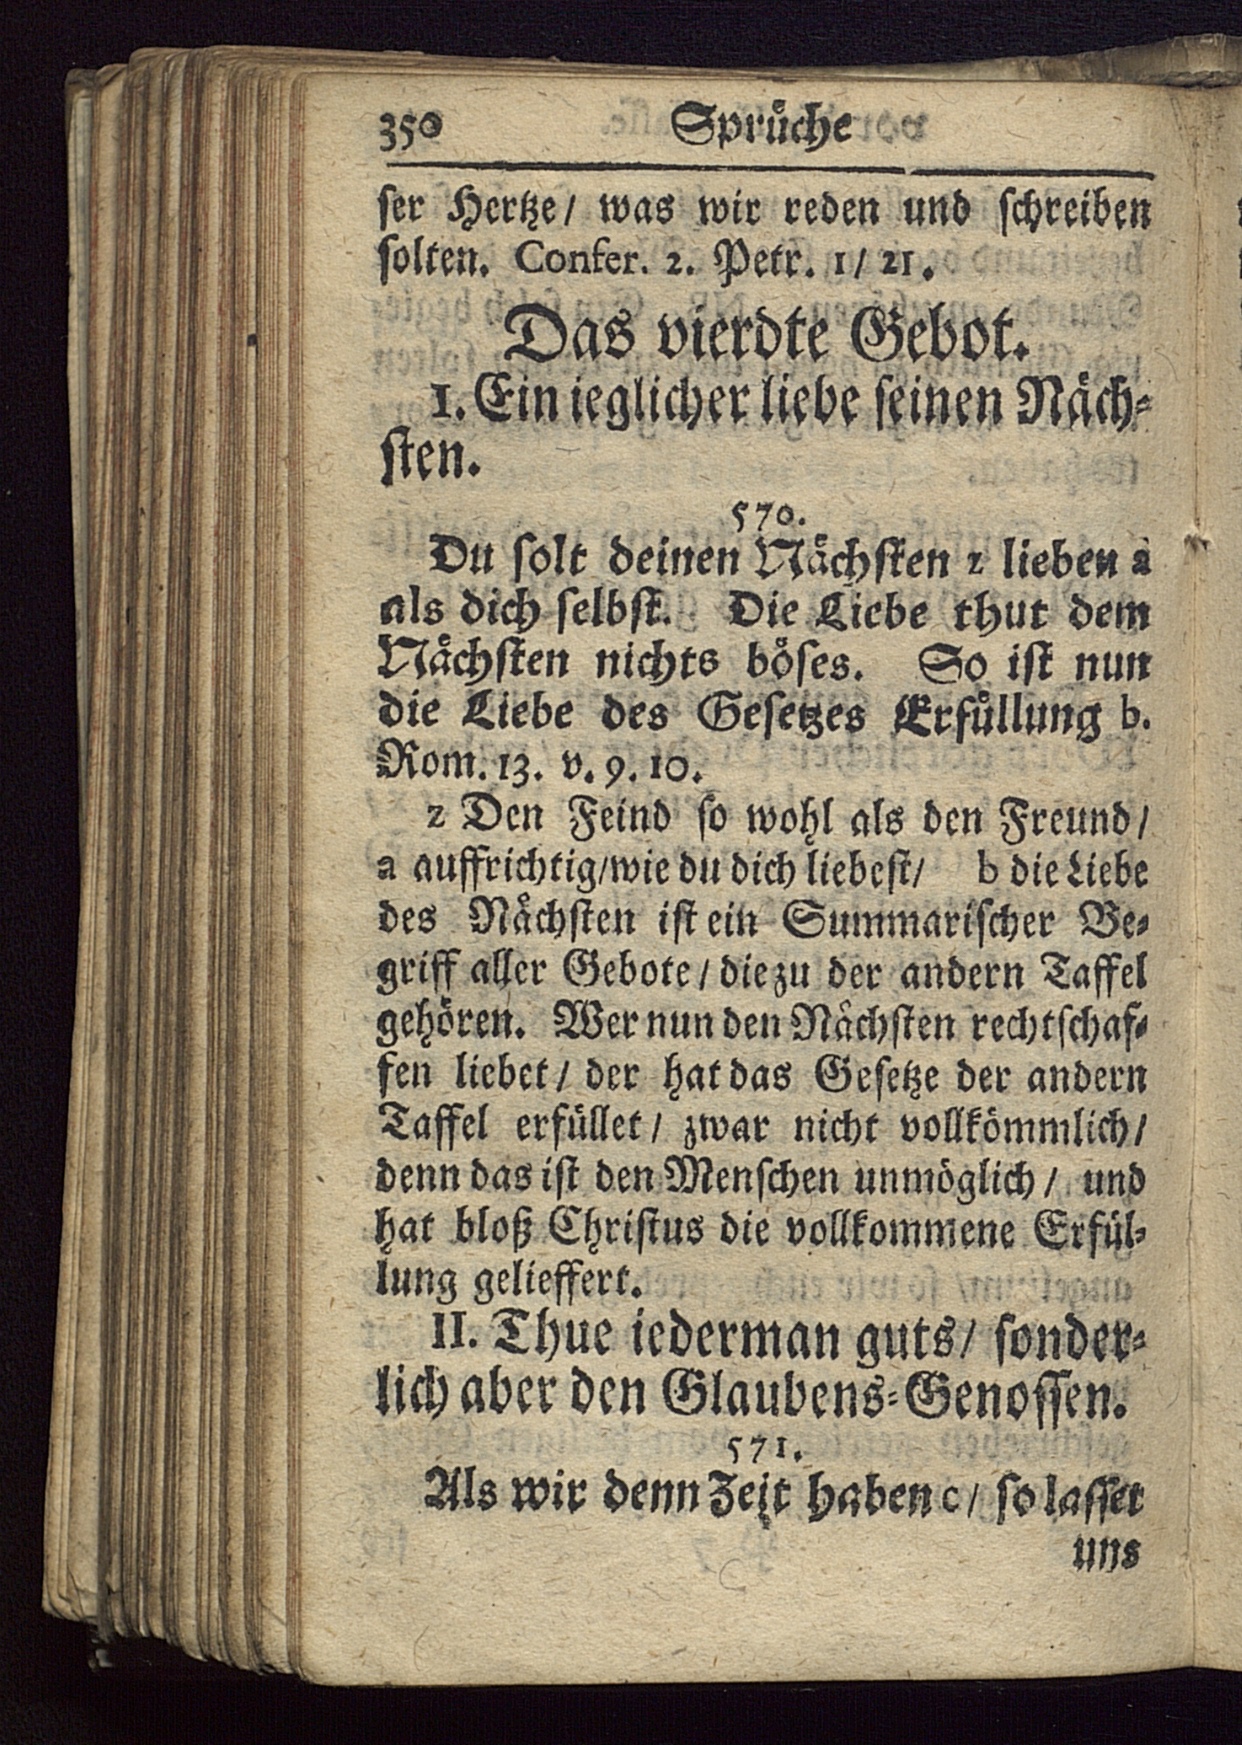 350 Sprüche
ser Hertze/ was wir reden und schreiben
solten. Confer. 2. Petr. 1/ 21.
Das vierdte Gebot.
I. Ein ieglicher liebe seinen Näch-
sten.
570.
Du solt deinen Nächsten z lieben a
als dich selbst. Die Liebe thut dem
Nächsten nichts böses. So ist nun
die Liebe des Gesetzes Erfüllung b.
Rom. 13. v. 9. 10.
z Den Feind so wohl als den Freund/
a auffrichtig/wie du dich liebest/ b die Liebe
des Nächsten ist ein Summarischer Be-
griff aller Gebote/ die zu der andern Taffel
gehören. Wer nun den Nächsten rechtschaf-
fen liebet/ der hat das Gesetze der andern
Taffel erfüllet/ zwar nicht vollkömmlich/
denn das ist den Menschen unmöglich/ und
hat bloß Christus die vollkommene Erfül-
lung gelieffert.
II. Thue iederman guts/ sonder-
lich aber den Glaubens-Genossen.
571.
Als wir denn Zeit haben c/ so lasset
uns